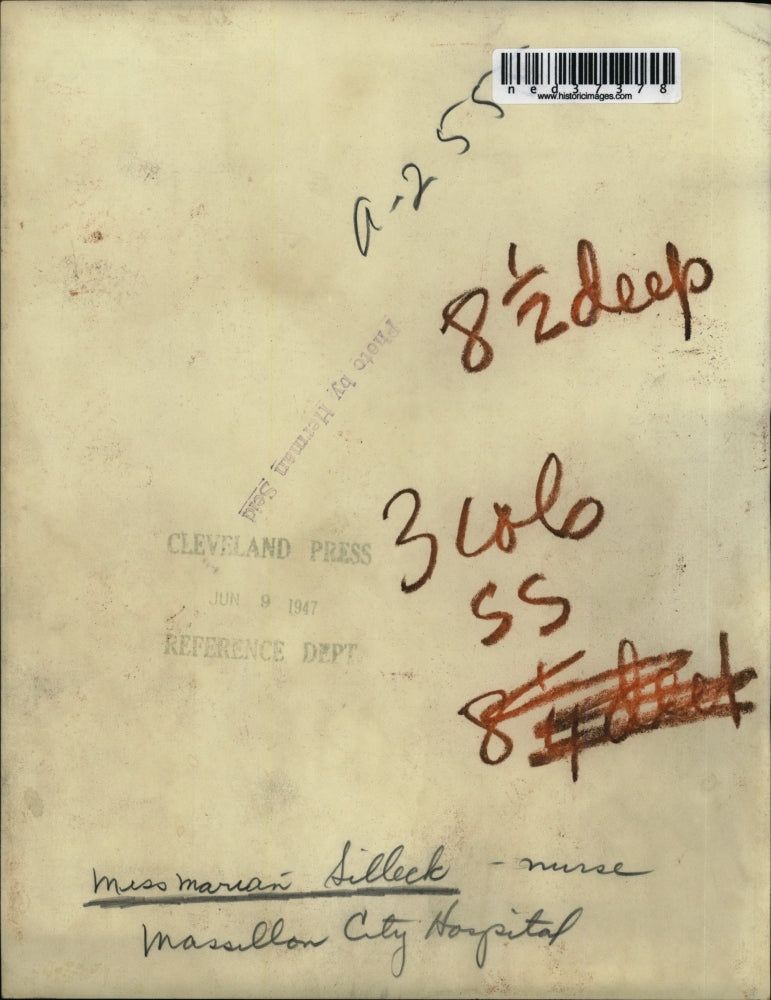 ned37378
www.historicimages.com
a-255
8 1/2 deep
Photo by Herman Seid
3 cols
CLEVELAND PRESS
SS
JUN 9 1947
REFERENCE DEPT
8 1/4 deep
Miss Marian Silleck - nurse
Massillon City Hospital